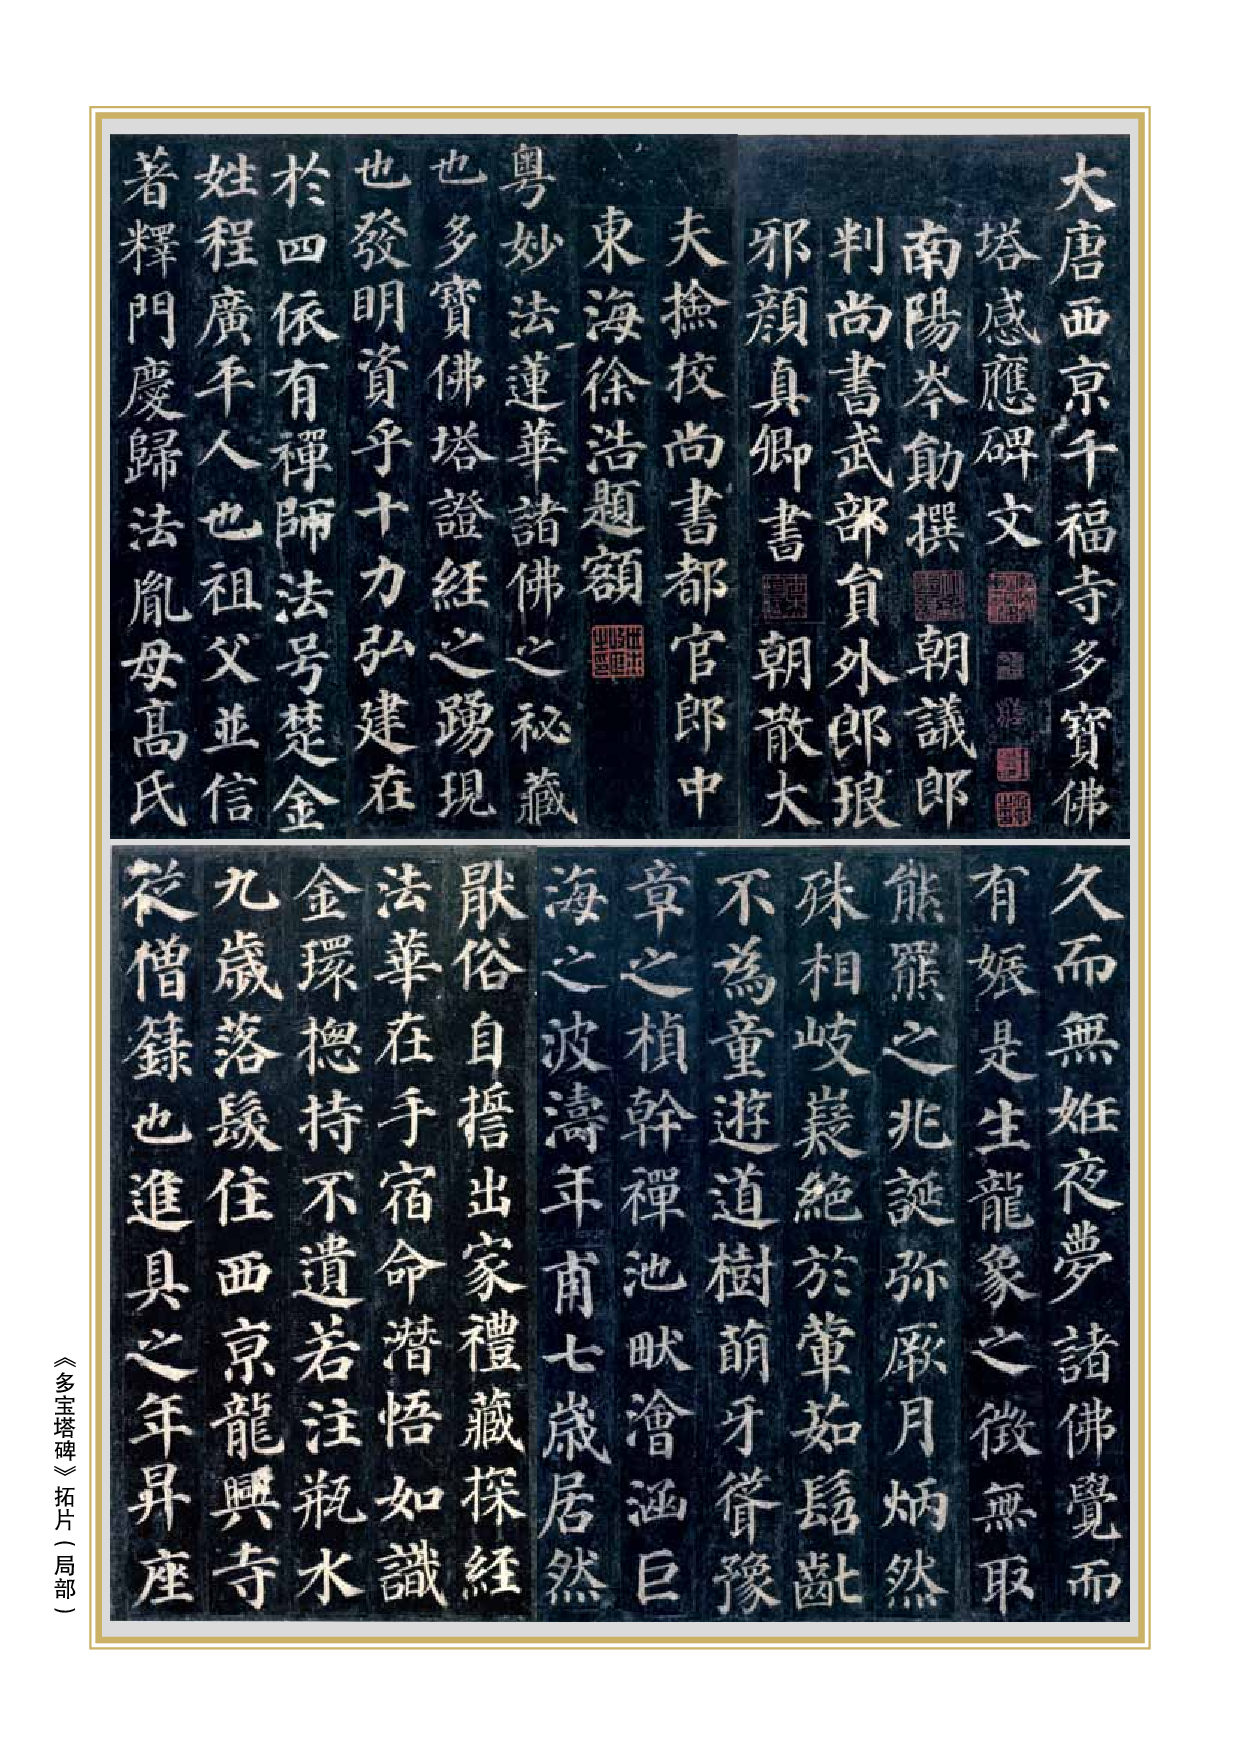 大唐西京千福寺多寶佛
塔感應碑文
南陽岑勛撰朝議郎
判尚書武部員外郎琅
邪顏真卿書朝散大
夫撿校尚書都官郎中
東海徐浩題額
粵妙法蓮華諸佛之祕藏
也多寶佛塔證経之踴現
也發明資乎十力弘建在
於四依有禪師法号楚金
姓程廣平人也祖父並信
著釋門慶歸法胤母高氏
久而無姙夜夢諸佛覺而
有娠是生龍象之徵無取
熊羆之兆誕弥厥月炳然
殊相岐嶷絶於葷茹髫齔
不為童遊道樹萌牙聳豫
章之楨幹禪池畎澮涵巨
海之波濤年甫七歲居然
猒俗自誓出家禮藏探経
法華在手宿命潛悟如識
金環揔持不遺若注瓶水
九歲落髮住西京龍興寺
從僧籙也進具之年昇座
《多宝塔碑》拓片(局部)